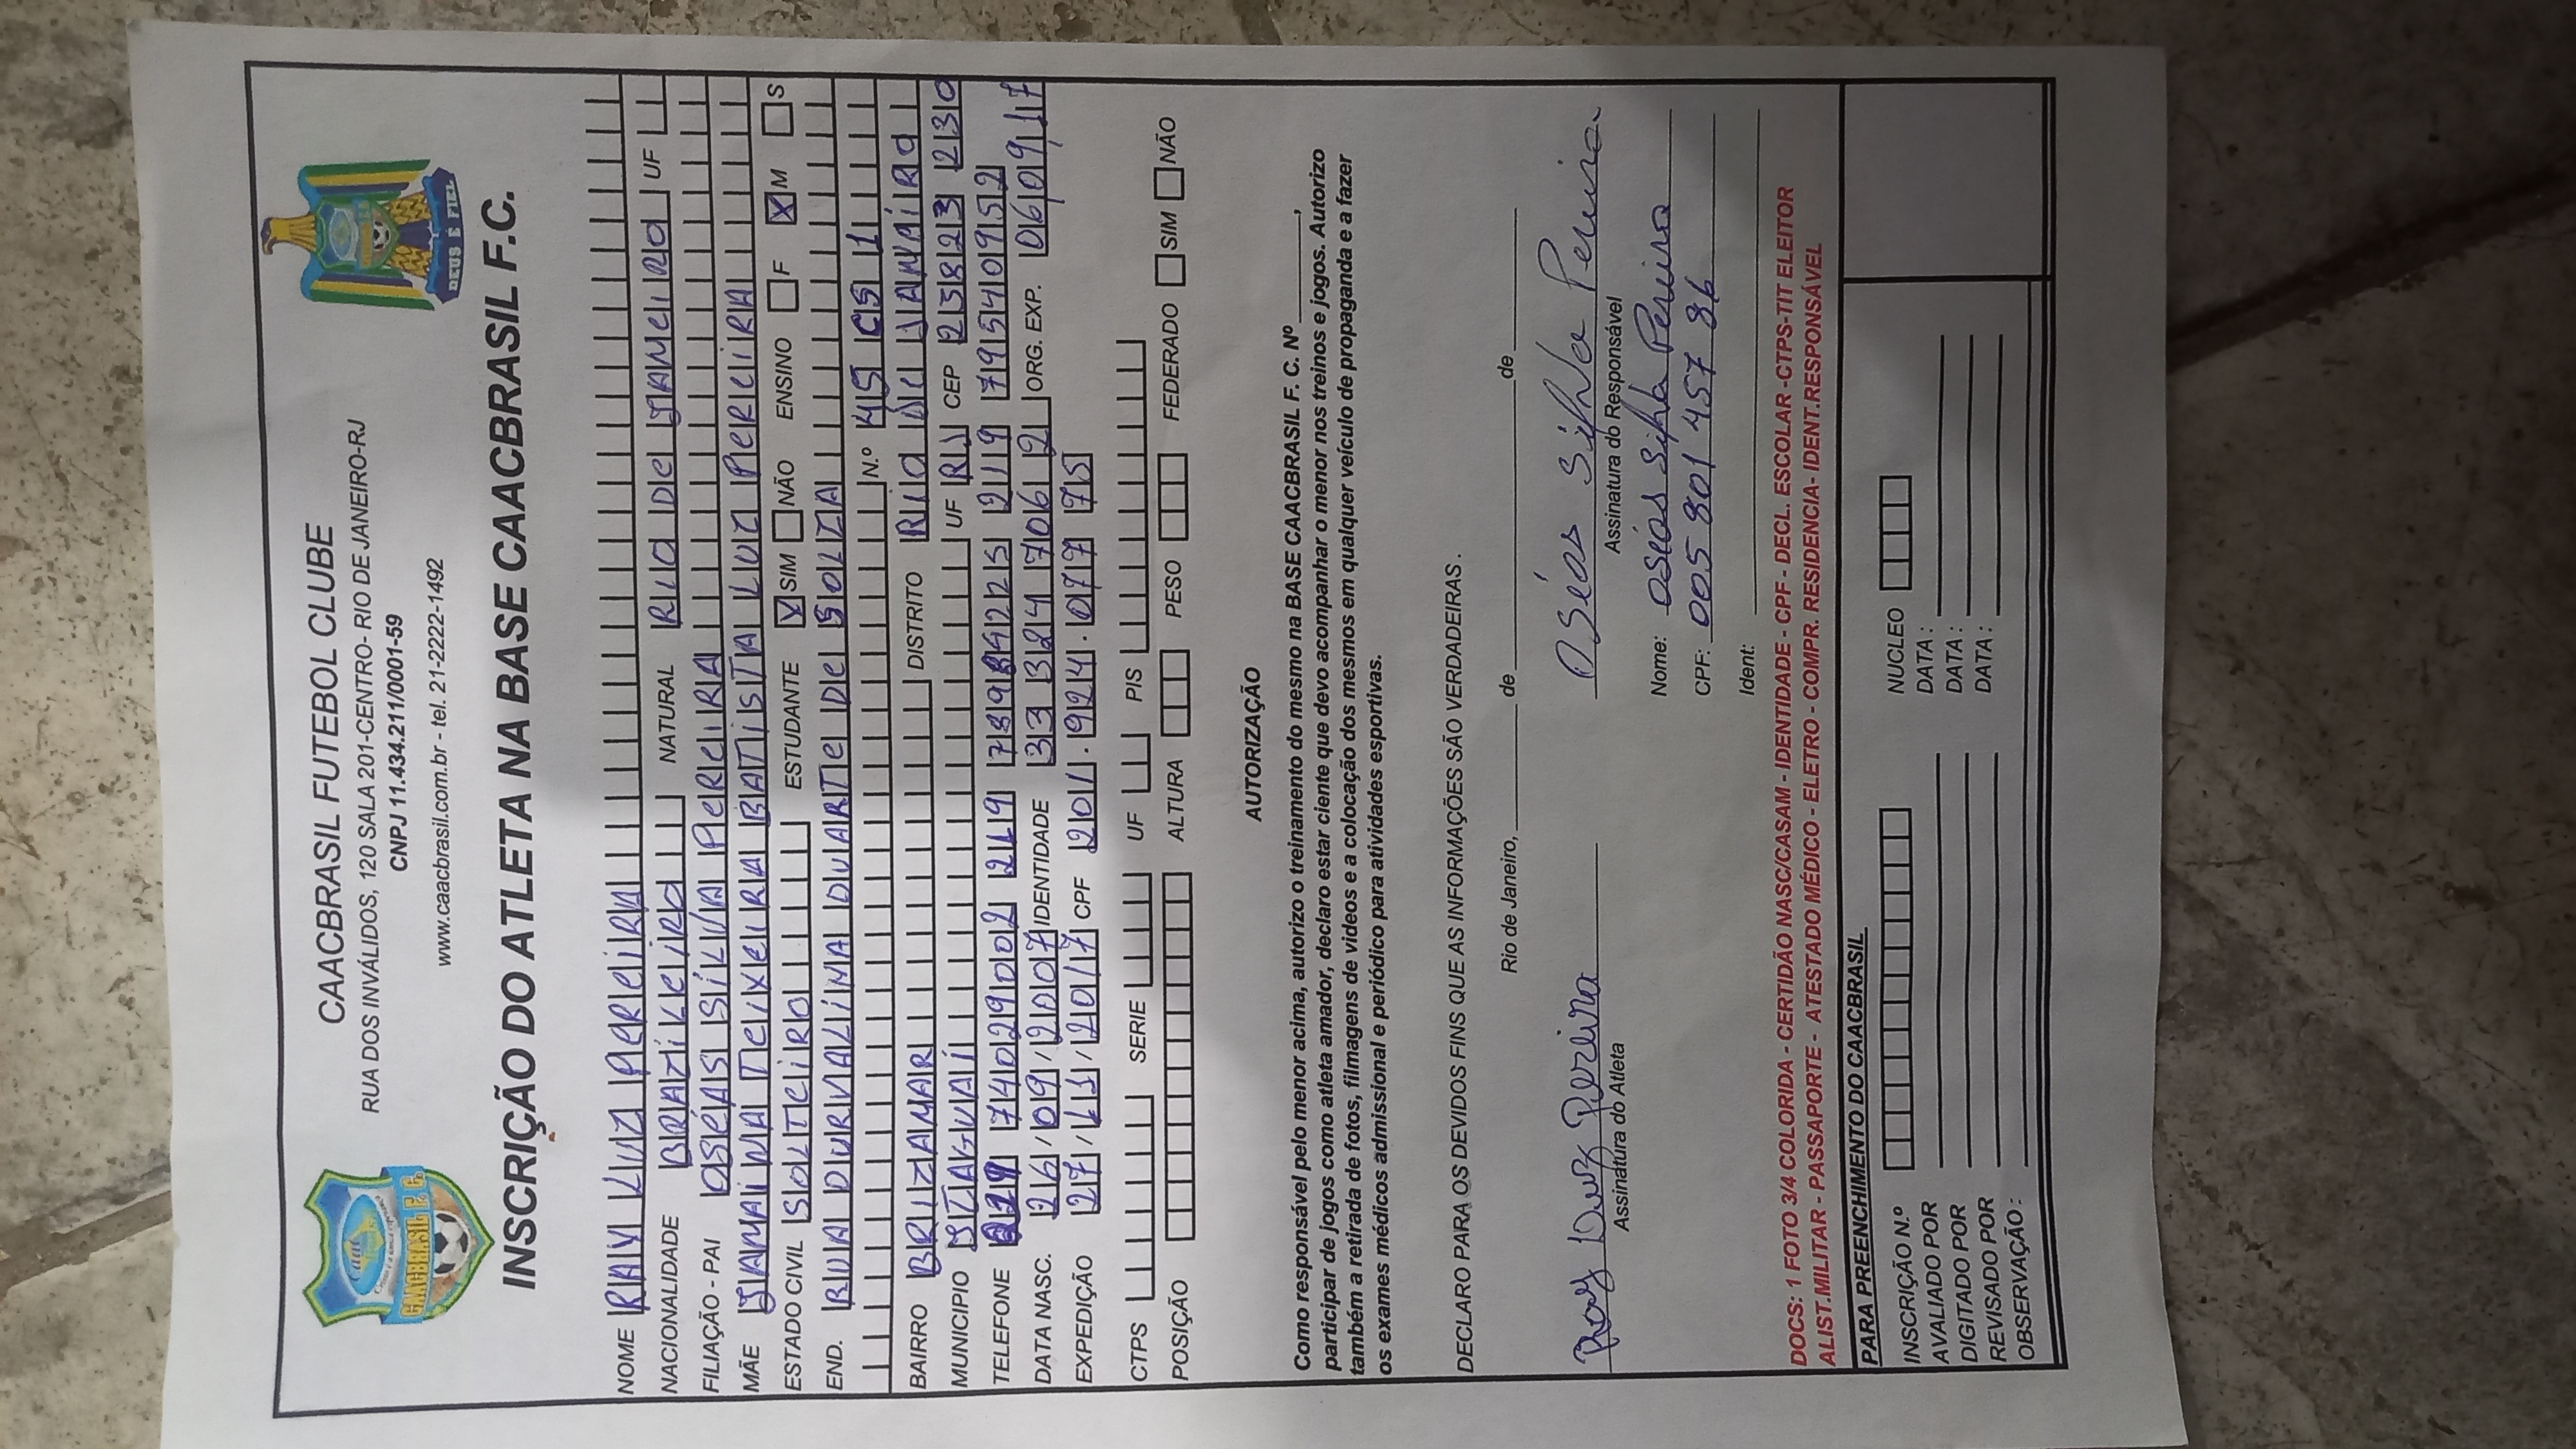 CAACBRASIL FUTEBOL CLUBE
RUA DOS INVÁLIDOS, 120 SALA 201-CENTRO- RIO DE JANEIRO-RJ
CNPJ 11.434.211/0001-59
www.caacbrasil.com.br - tel. 21-2222-1492
CAACBRASIL F. C.
DEUS É FIEL
INSCRIÇÃO DO ATLETA NA BASE CAACBRASIL F.C.
NOME RAVI LUZ PEREIRA
NACIONALIDADE BRAZÍLEIRO NATURAL RIO DE JANEIRO UF
FILIAÇÃO - PAI OSÉAS SILVA PEREIRA
MÃE JAMAINA TEIXEIRA BATISTA LUZ PEREIRA
ESTADO CIVIL SOLTEIRO ESTUDANTE X SIM NÃO ENSINO F X M S
END. RUA DURVALINA DUARTE DE SOUZA
N.º 45 CS 1
BAIRRO BRIZAMAR DISTRITO RIO DE JANEIRO
MUNICIPIO ITAGUAÍ UF RJ CEP 23823 230
TELEFONE 219 74029002 219 219 79540952
DATA NASC. 26/09/2007 IDENTIDADE 33 324 706 2 ORG. EXP. 06/09/17
EXPEDIÇÃO 27/11/2017 CPF 201.924.077 75
CTPS SERIE UF PIS
POSIÇÃO ALTURA PESO FEDERADO SIM NÃO
AUTORIZAÇÃO
Como responsável pelo menor acima, autorizo o treinamento do mesmo na BASE CAACBRASIL F. C. Nº ________,
participar de jogos como atleta amador, declaro estar ciente que devo acompanhar o menor nos treinos e jogos. Autorizo
também a retirada de fotos, filmagens de videos e a colocação dos mesmos em qualquer veículo de propaganda e a fazer
os exames médicos admissional e periódico para atividades esportivas.
DECLARO PARA OS DEVIDOS FINS QUE AS INFORMAÇÕES SÃO VERDADEIRAS .
Rio de Janeiro, ________ de ________ de ________
Luz Pereira Oséas Silva Pereira
Assinatura do Atleta Assinatura do Responsável
Nome: Oséas Silva Pereira
CPF: 005 801 457 86
Ident:
DOCS: 1 FOTO 3/4 COLORIDA - CERTIDÃO NASC/CASAM - IDENTIDADE - CPF - DECL. ESCOLAR -CTPS-TIT ELEITOR
ALIST.MILITAR - PASSAPORTE - ATESTADO MÉDICO - ELETRO - COMPR. RESIDENCIA- IDENT.RESPONSÁVEL
PARA PREENCHIMENTO DO CAACBRASIL
INSCRIÇÃO N.º NUCLEO
AVALIADO POR DATA :
DIGITADO POR DATA :
REVISADO POR DATA :
OBSERVAÇÃO :